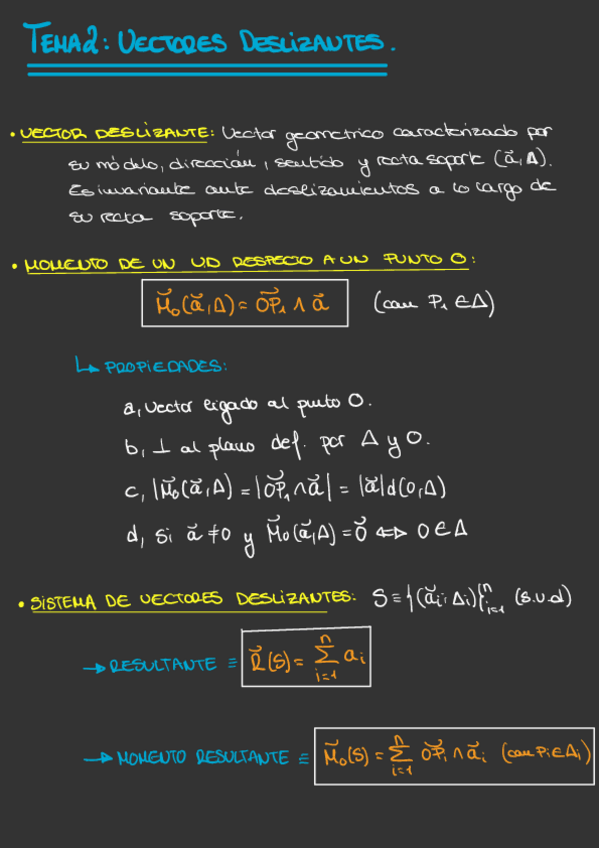 TEMA 2: VECTORES DESLIZANTES.
• VECTOR DESLIZANTE: Vector geometrico caracterizado por
su módulo, dirección, sentido y recta soporte (a⃗, Δ).
Es invariante ante deslizamientos a lo largo de
su recta soporte.
• MOMENTO DE UN V.D RESPECTO A UN PUNTO O:
M⃗₀(a⃗, Δ) = OP⃗₁ ∧ a⃗ (con P₁ ∈ Δ)
↳ PROPIEDADES:
a, Vector ligado al punto O.
b, ⊥ al plano def. por Δ y O.
c, |M⃗₀(a⃗, Δ)| = |OP⃗₁ ∧ a⃗| = |a⃗| d(O, Δ)
d, Si a⃗ ≠ 0 y M⃗₀(a⃗, Δ) = 0⃗ ⇔ O ∈ Δ
• SISTEMA DE VECTORES DESLIZANTES: S ≡ {(a⃗ᵢ; Δᵢ)}ⁿᵢ₌₁ (s.v.d)
→ RESULTANTE ≡ R⃗(S) = Σⁿᵢ₌₁ aᵢ
→ MOMENTO RESULTANTE ≡ M⃗₀(S) = Σⁿᵢ₌₁ OP⃗ᵢ ∧ a⃗ᵢ (con Pᵢ ∈ Δᵢ)